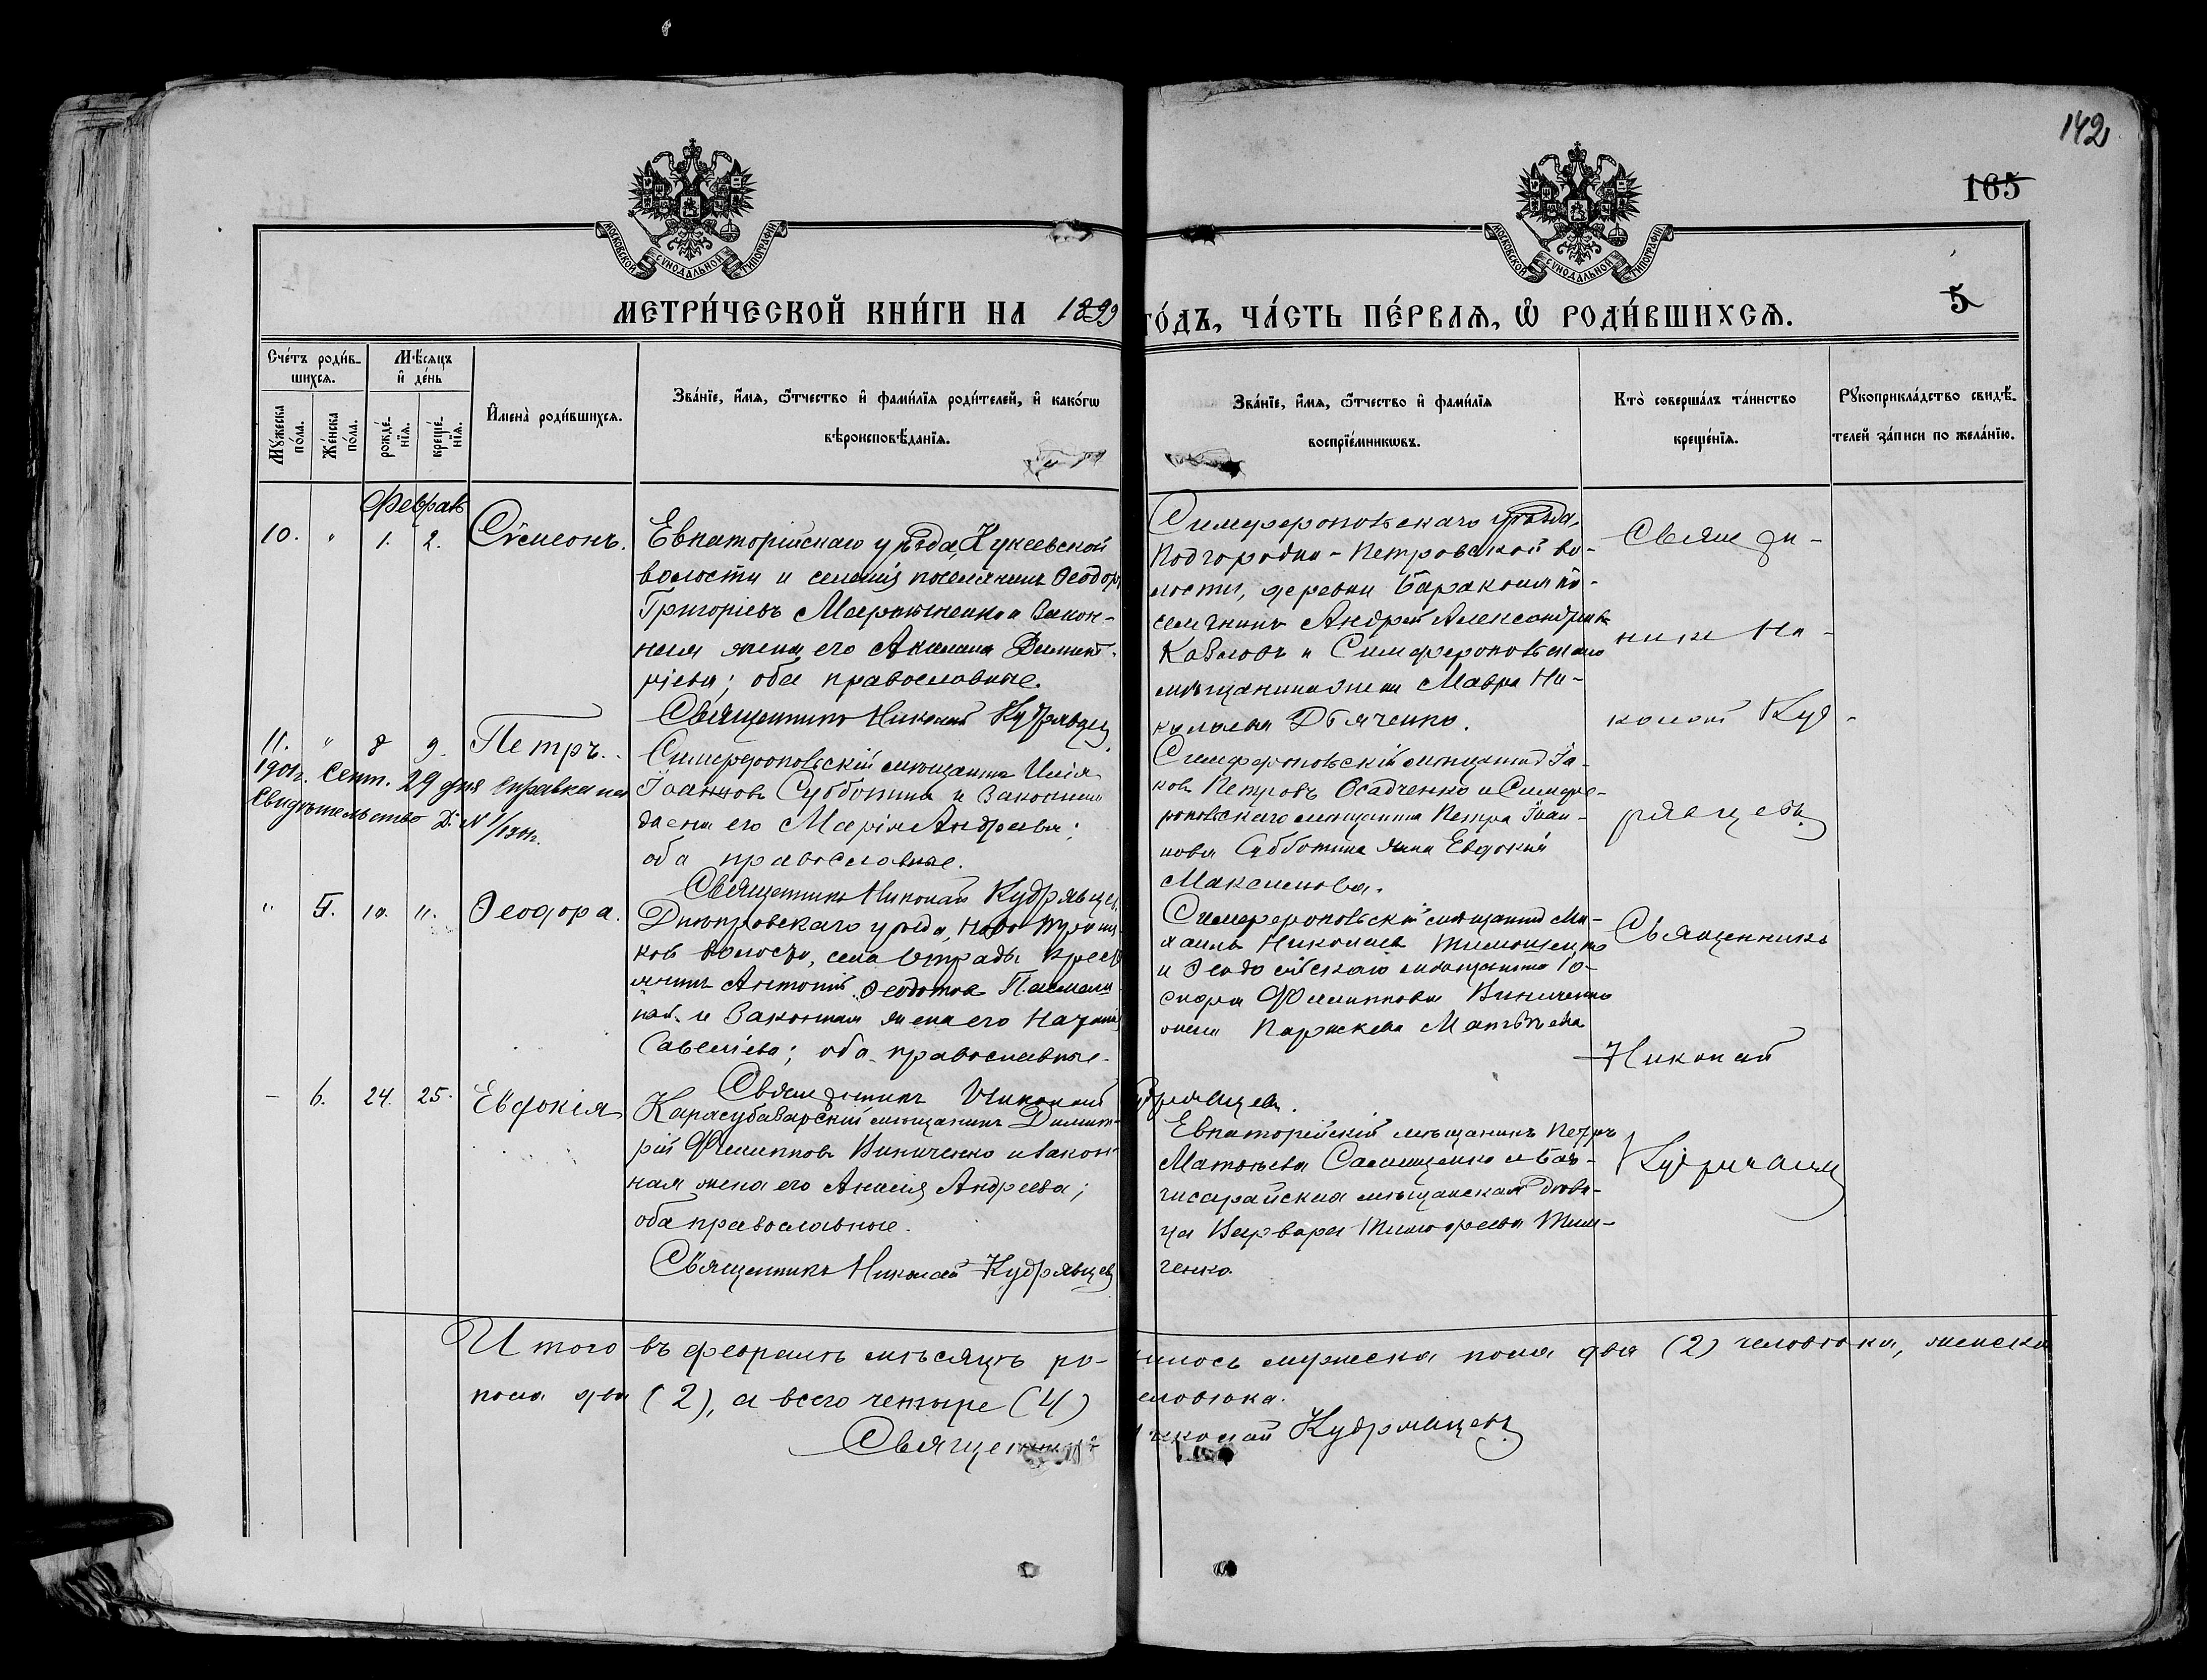 142
165
5
МОСКОВСКОЙ СѴНОДАЛЬНОЙ ТИПОГРАФІИ
МОСКОВСКОЙ СѴНОДАЛЬНОЙ ТИПОГРАФІИ
МЕТРИ́ЧЕСКОЙ КНИ́ГИ НА 1899 ГО́ДЪ, ЧА́СТЬ ПЕ́РВАѦ, Ѡ҆ РОДИ́ВШИХСѦ.
Сче́тъ роди́в-
шихсѧ.
Мꙋ́жеска
по́ла.
Же́нска
по́ла.
Мѣ́сѧцъ
и҆ де́нь
рожде́-
нїѧ.
креще́-
нїѧ.
И҆мена̀ роди́вшихсѧ.
Зва́нїе, и҆́мѧ, ѻ҆́тчество и҆ фами́лїѧ роди́телей, и҆ како́гѡ
вѣроисповѣ́данїѧ.
Зва́нїе, и҆́мѧ, ѻ҆́тчество и҆ фами́лїѧ
воспрїе́мникѡвъ.
Кто̀ соверша́лъ та́инство
креще́нїѧ.
Рꙋкоприкла́дство свидѣ́-
телей за́писи по жела́нїю.
Феврал
10. " 1. 2. Сѵмеонъ.
Евпаторійскаго уѣзда Кунеевской
волости и селенія поселянинъ Ѳеодоръ
Григоріевъ Мартыненко и закон-
ная жена его Акилина Димит-
ріева; оба православные.
Священникъ Николай Кудрявцев
Симферопольскаго уѣзда,
Подгородне-Петровской во-
лости, деревни по-
селянинъ Андрей Александровъ
Козловъ и Симферопольскаго
мѣщанина жена Мавра Ни-
колаева Дьяченко.
Священ-
никъ Ни-
колай Куд-
рявцевъ
11. " 8 9. Петръ.
1901г. Сент. 29 дня справка на
Свидѣтельство Д. № 1/1901г.
Симферопольскій мѣщанинъ Илія
Іоанновъ Субботинъ и законная
жена его Марія Андреева;
оба православные.
Священникъ Николай Кудрявцев
Симферопольскій мѣщанинъ Іа-
ковъ Петровъ Осадченко и Симфе-
ропольскаго мѣщанина Петра Іоан-
нова Субботина жена Евдокія
Максимова.
" 5. 10. 11. Ѳеодора.
Днѣпровскаго уѣзда,
волости, села Отрады кресть-
янинъ Антоній Ѳедотовъ
и законная жена его Наталія
Савеліева; оба православные.
Священникъ Николай Кудрявцевъ.
Симферопольскій мѣщанинъ Ми-
хаилъ Николаевъ Тимошенко
и Ѳеодосійскаго мѣщанина Іо-
сифа Филиппова Виниченко
жена Параскева Матвѣева
Священникъ
Николай
Кудрявцевъ
- 6. 24. 25. Евдокія
Карасубазарскій мѣщанинъ Димит-
рій Филипповъ Виниченко и закон-
ная жена его Анисія Андреева;
оба православные.
Священникъ Николай Кудрявцев
Евпаторійскій мѣщанинъ Петръ
Матвѣевъ и Бах-
чисарайская мѣщанская дѣви-
ца Варвара Тимофеева Тим-
ченко.
Итого въ февралѣ мѣсяцѣ родилось мужеска пола два (2) человѣка, женска
пола два (2), а всего четыре (4) человѣка.
Священникъ Николай Кудрявцевъ